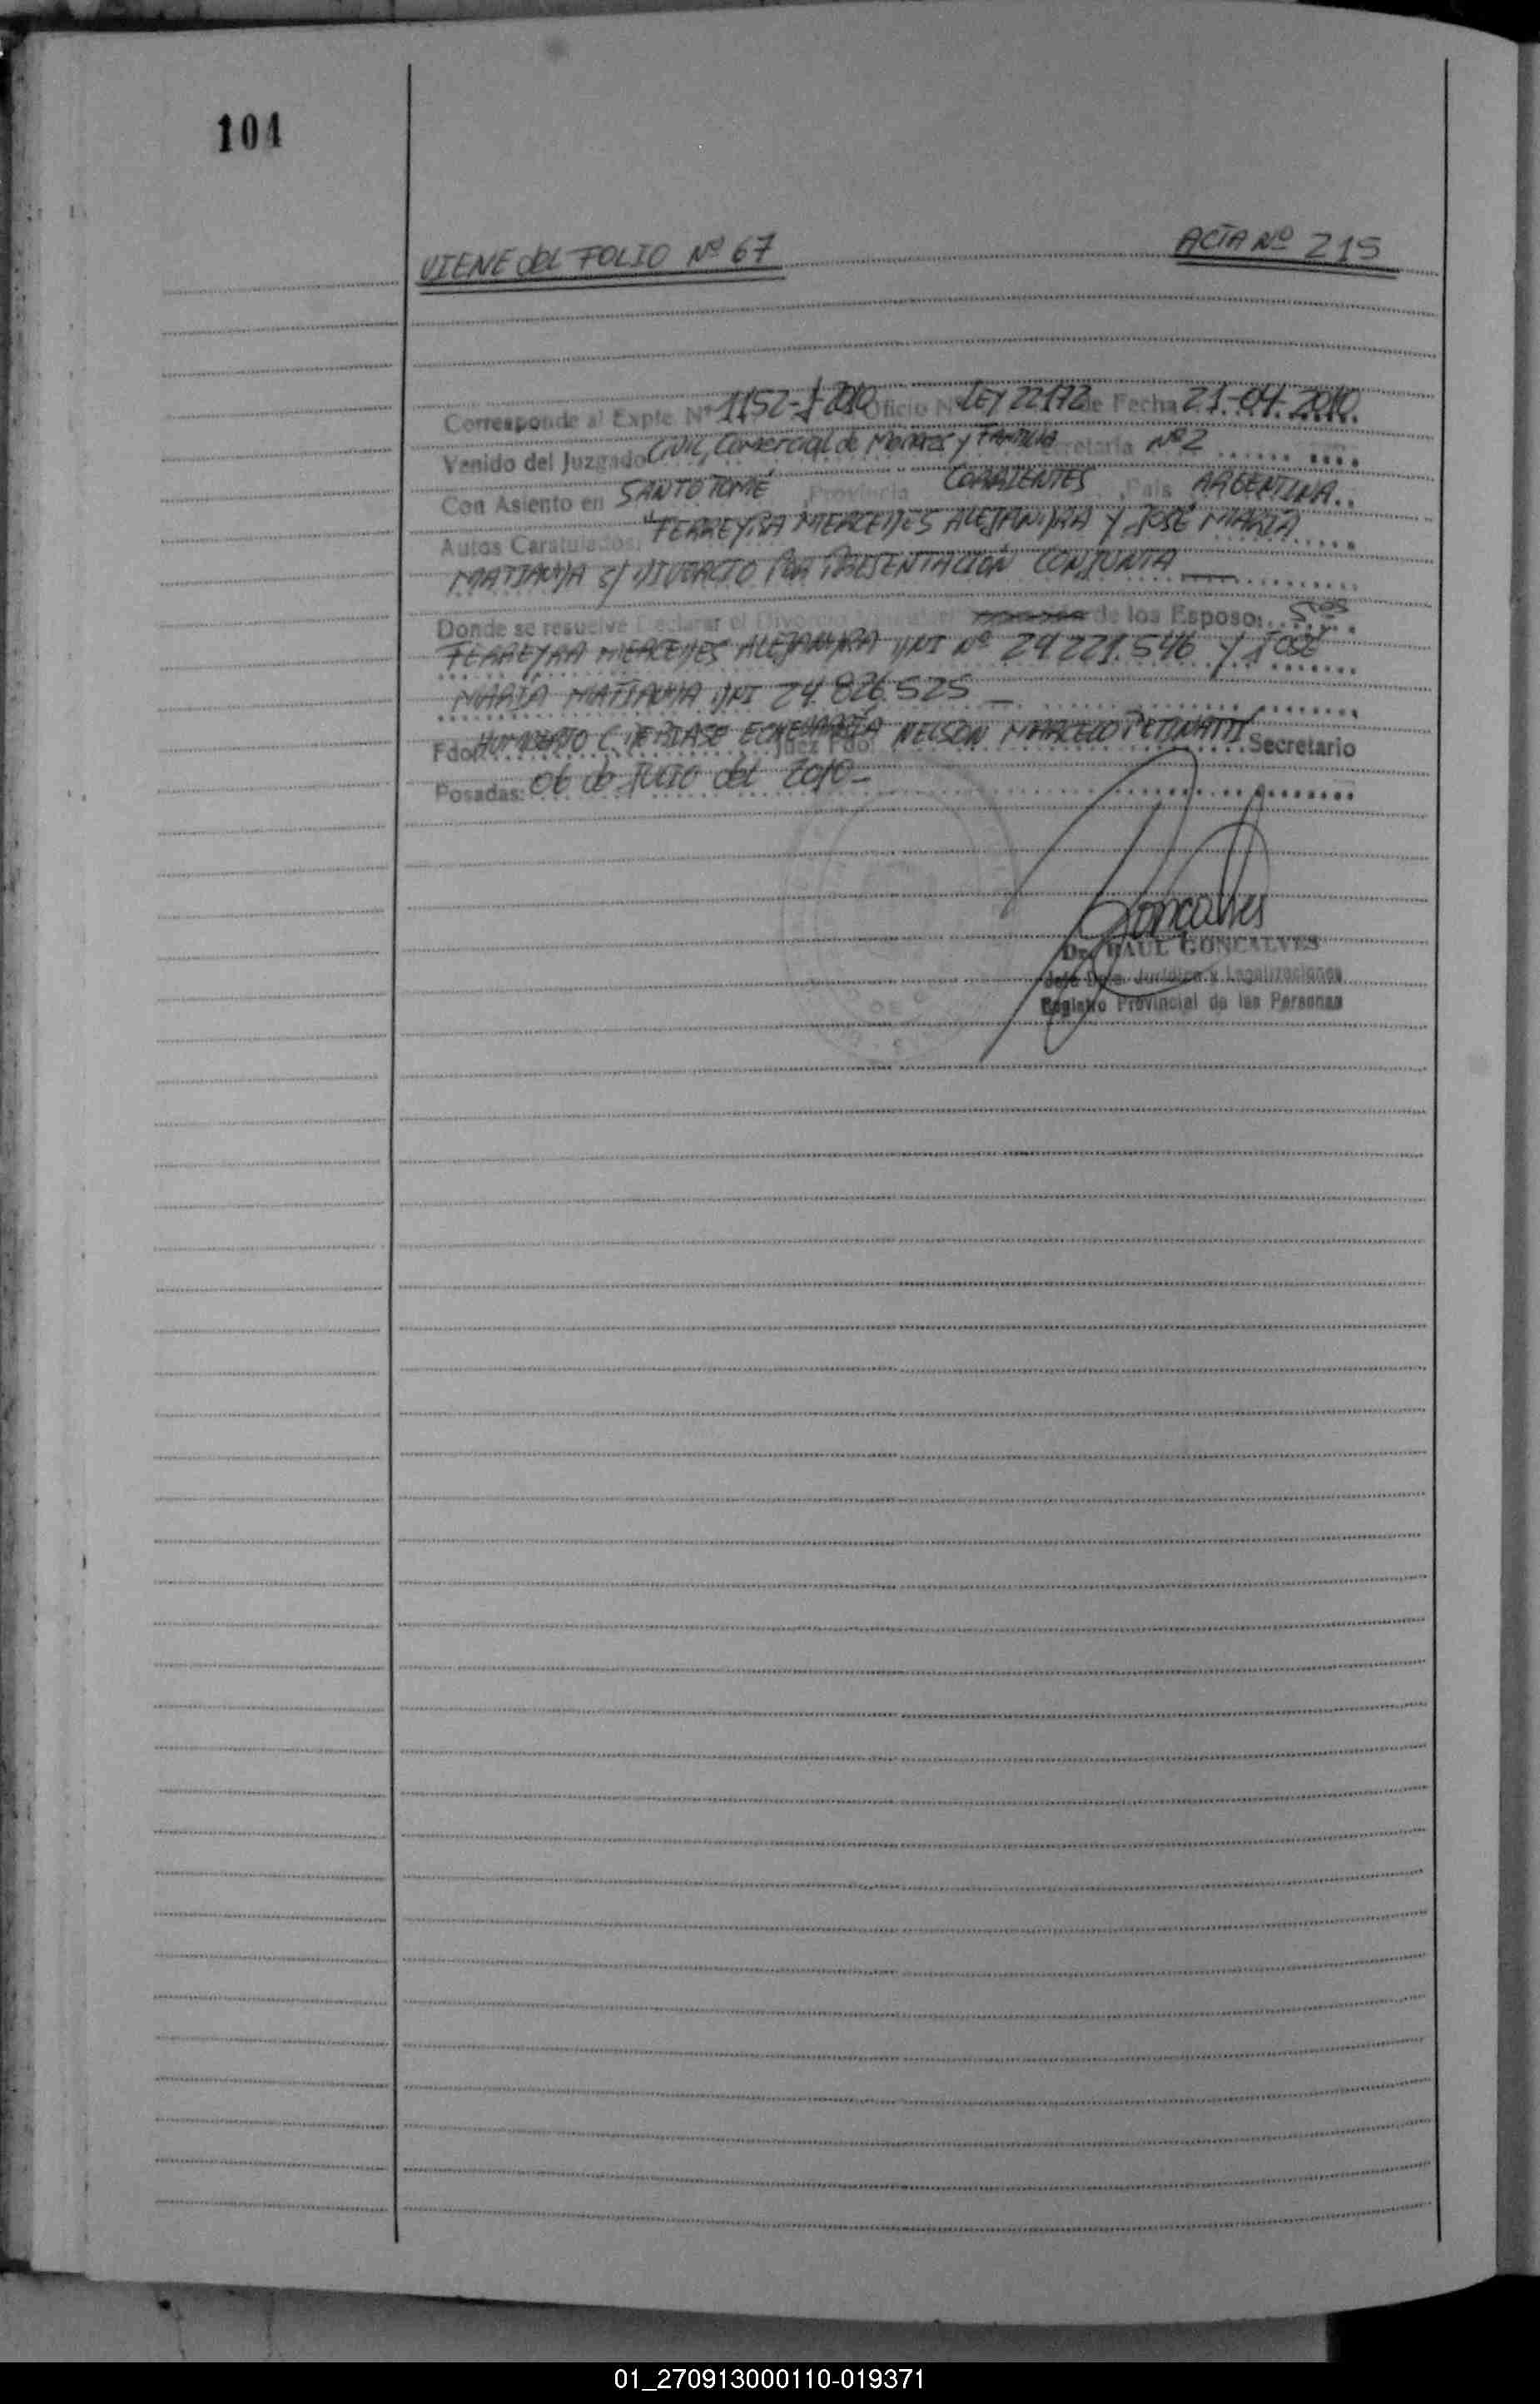 104
VIENE del FOLIO Nº 67 ACTA Nº 215
Corresponde al Expte. Nº 1152-J-2010 Oficio Nº LEY 22172 de Fecha 21-04-2010
Venido del Juzgado Civil, Comercial de Menores y Familia Secretaria Nº 2
Con Asiento en SANTO TOMÉ, Provincia CORRIENTES, Pais ARGENTINA
Autos Caratulados: "FERREYRA MERCEDES ALEJANDRA Y JOSÉ MARÍA
S/ DIVORCIO POR PRESENTACIÓN CONJUNTA
Donde se resuelve Declarar el Divorcio de los Esposo: Sres
FERREYRA MERCEDES ALEJANDRA DNI Nº 24.221.546 Y JOSÉ
MARÍA DNI 24.826.525
Fdo: HUMBERTO C. DE BIASE ECHEVARRÍA Juez Fdo: NELSON MARCELO Secretario
Posadas: 06 de JULIO del 2010-
Goncalves
Dr. RAUL GONCALVES
Jefe Dpto. Jurídico y Legalizaciones
Registro Provincial de las Personas
01_270913000110-019371